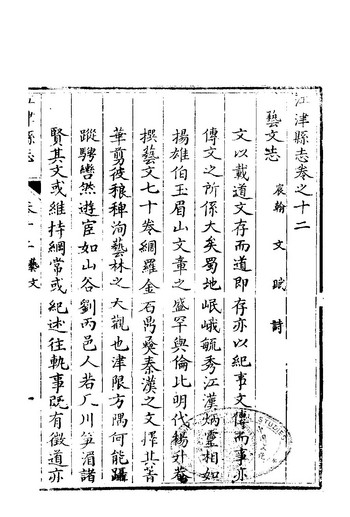 江津縣志卷之十二
藝文志
宸翰 文 賦 詩
文以載道文存而道即存亦以紀事文傳而事亦
傳文之所係大矣蜀地岷峨毓秀江漢炳靈相如
揚雄伯玉眉山文章之盛罕與倫比明代楊升菴
撰藝文七十卷網羅金石鼎彝秦漢之文擇其菁
華剪彼稂稗洵藝林之大觀也津限方隅何能躡
蹤騁轡然遊宦如山谷劉丙邑人若厂川笋湄諸
賢其文或維持綱常或紀述往軌事既有徵道亦
江津縣志
卷十二 藝文